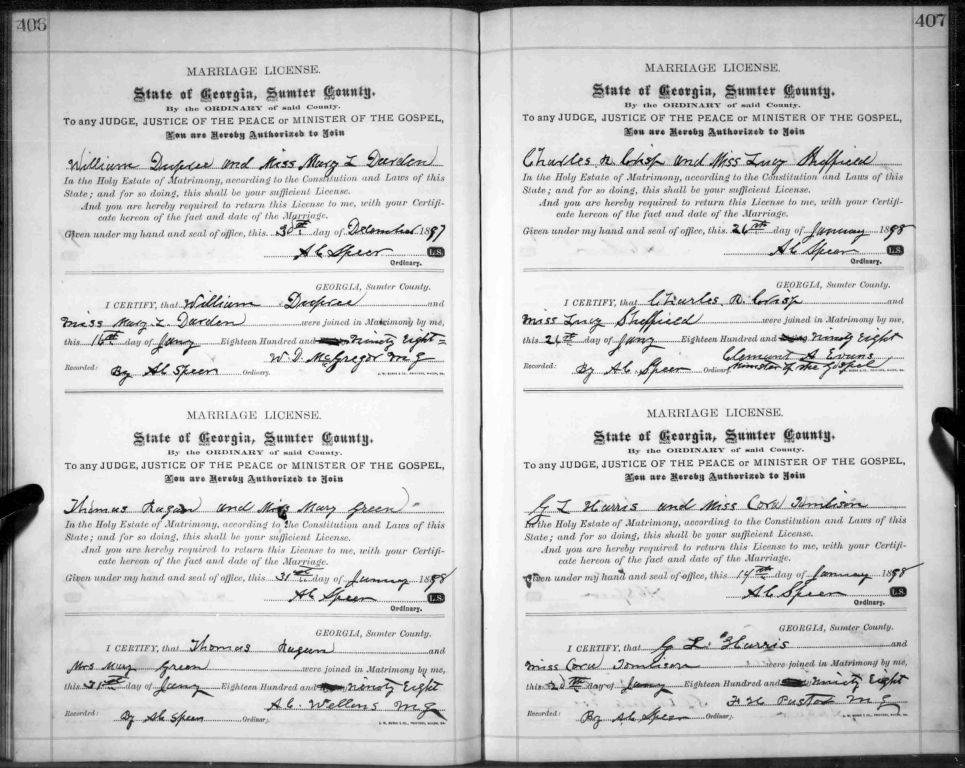 406
MARRIAGE LICENSE.
State of Georgia, Sumter County.
By the ORDINARY of said County.
To any JUDGE, JUSTICE OF THE PEACE or MINISTER OF THE GOSPEL,
You are Hereby Authorized to Join
William Dupree and Miss Mary L Darden
In the Holy Estate of Matrimony, according to the Constitution and Laws of this
State; and for so doing, this shall be your sufficient License.
And you are hereby required to return this License to me, with your Certifi-
cate hereon of the fact and date of the Marriage.
Given under my hand and seal of office, this 30th day of December 1897
A C Speer L.S.
Ordinary.
GEORGIA, Sumter County.
I CERTIFY, that William Dupree and
Miss Mary L. Darden were joined in Matrimony by me,
this 16th day of Jany Eighteen Hundred and Ninety Eight
W. D. McGregor M G
Recorded: By A C Speer Ordinary.
MARRIAGE LICENSE.
State of Georgia, Sumter County.
By the ORDINARY of said County.
To any JUDGE, JUSTICE OF THE PEACE or MINISTER OF THE GOSPEL,
You are Hereby Authorized to Join
Thomas Ragan and Mrs Mary Green
In the Holy Estate of Matrimony, according to the Constitution and Laws of this
State; and for so doing, this shall be your sufficient License.
And you are hereby required to return this License to me, with your Certifi-
cate hereon of the fact and date of the Marriage.
Given under my hand and seal of office, this 31st day of January 1898
A C Speer L.S.
Ordinary.
GEORGIA, Sumter County.
I CERTIFY, that Thomas Ragan and
Mrs Mary Green were joined in Matrimony by me,
this 31st day of Jany Eighteen Hundred and Ninety Eight
A. C. Wellons M G
Recorded: By A C Speer Ordinary.
407
MARRIAGE LICENSE.
State of Georgia, Sumter County.
By the ORDINARY of said County.
To any JUDGE, JUSTICE OF THE PEACE or MINISTER OF THE GOSPEL,
You are Hereby Authorized to Join
Charles R Crisp and Miss Lucy Sheffield
In the Holy Estate of Matrimony, according to the Constitution and Laws of this
State; and for so doing, this shall be your sufficient License.
And you are hereby required to return this License to me, with your Certifi-
cate hereon of the fact and date of the Marriage.
Given under my hand and seal of office, this 26th day of January 1898
A C Speer L.S.
Ordinary.
GEORGIA, Sumter County.
I CERTIFY, that Charles R. Crisp and
Miss Lucy Sheffield were joined in Matrimony by me,
this 26th day of Jany Eighteen Hundred and Ninety Eight
Clement A Evans
Recorded: By A C Speer Ordinary. Minister of the Gospel
MARRIAGE LICENSE.
State of Georgia, Sumter County.
By the ORDINARY of said County.
To any JUDGE, JUSTICE OF THE PEACE or MINISTER OF THE GOSPEL,
You are Hereby Authorized to Join
G L Harris and Miss Cora Tomlison
In the Holy Estate of Matrimony, according to the Constitution and Laws of this
State; and for so doing, this shall be your sufficient License.
And you are hereby required to return this License to me, with your Certifi-
cate hereon of the fact and date of the Marriage.
Given under my hand and seal of office, this 14th day of January 1898
A C Speer L.S.
Ordinary.
GEORGIA, Sumter County.
I CERTIFY, that G L. Harris and
Miss Cora Tomlison were joined in Matrimony by me,
this 20th day of Jany Eighteen Hundred and Ninety Eight
M G
Recorded: By A C Speer Ordinary.